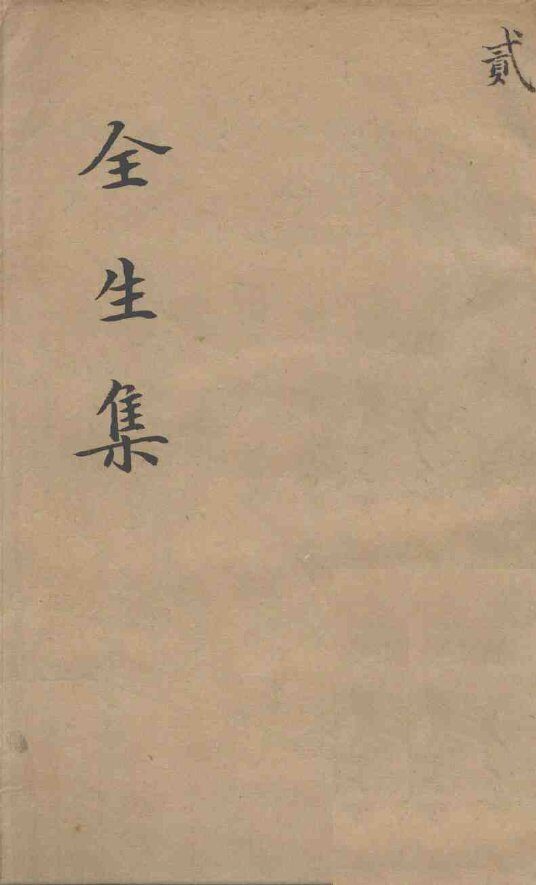 貳
全生集